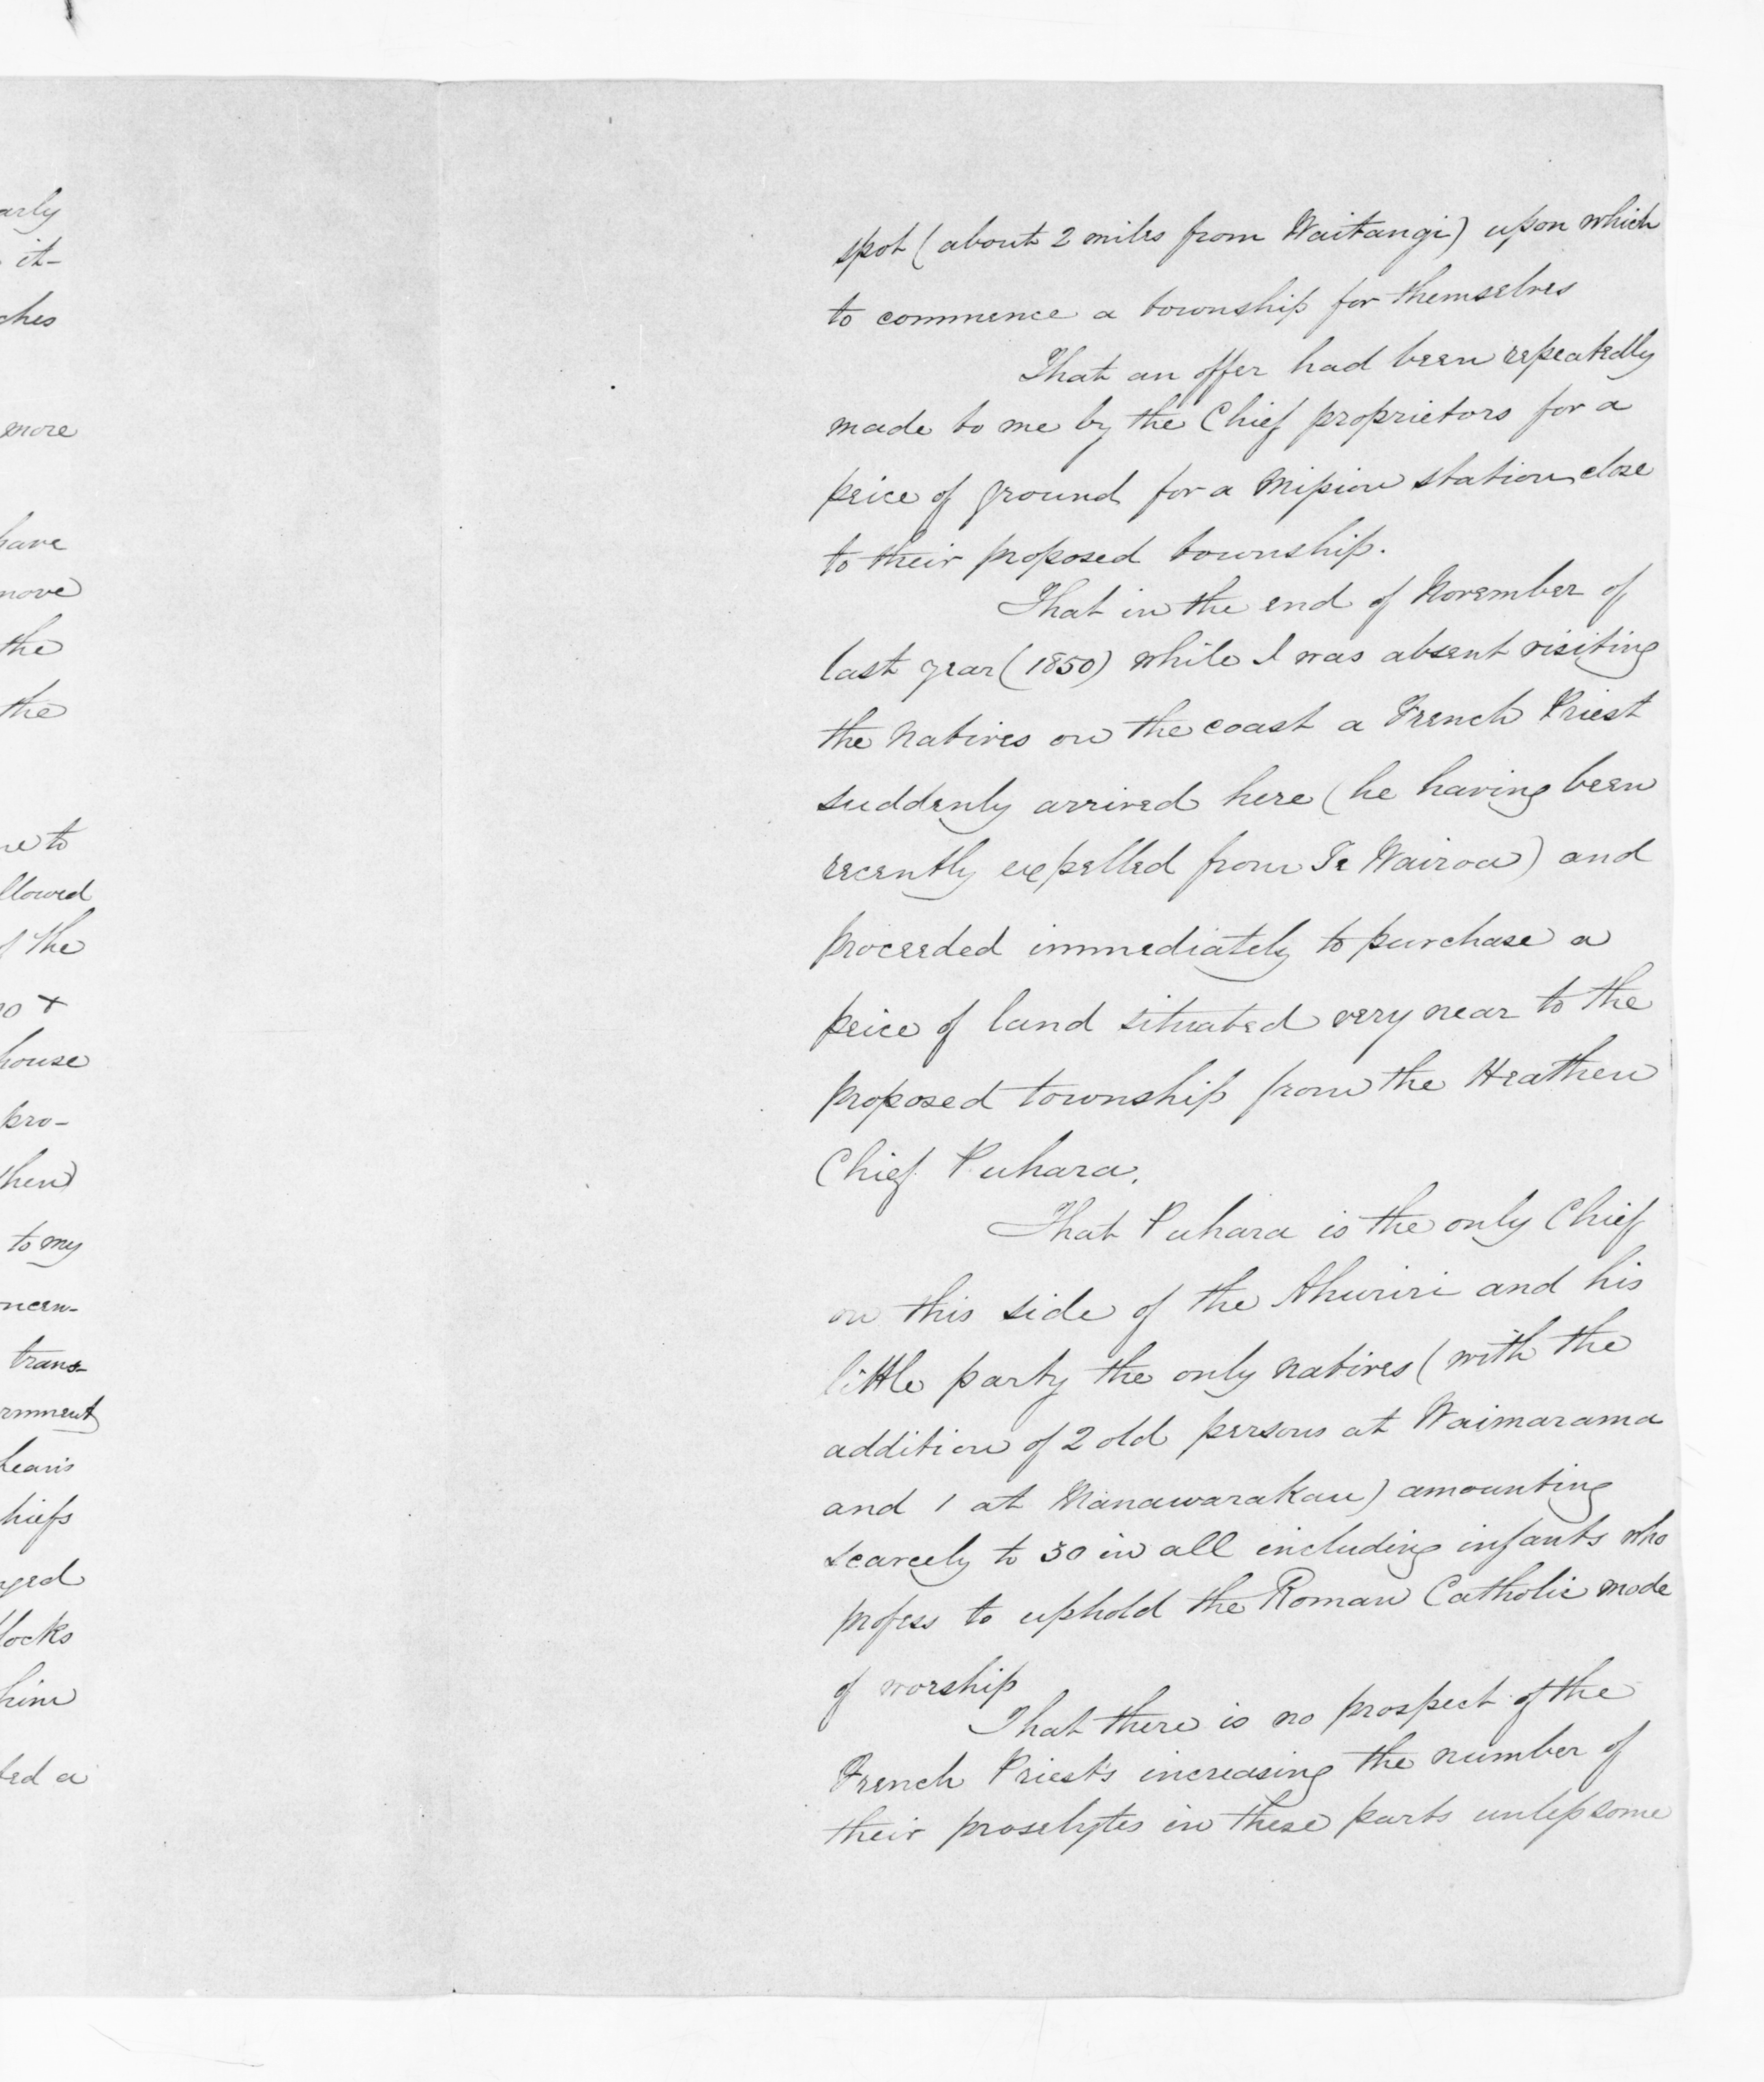 arly
it-
ches
more
have
move
the
the
ne to
llowed
f the
house
pro-
then
to my
ncen-
trans-
ernment
hiefs
ged
locks
him
ted a
spot (about 2 miles from Waitangi) upon which
to commence a township for themselves
That an offer had been repeatedly
made to me by the Chief proprietors for a
peice of ground for a Mission station close
to their proposed township.
That in the end of November of
last year (1850) while I was absent visiting
the Natives on the coast a French Priest
suddenly arrived here (he having been
recently expelled from Te Wairoa) and
proceeded immediately to purchase a
peice of land situated very near to the
proposed township from the Heathen
Chief Puhara.
That Puhara is the only Chief
on this side of the Ahuriri and his
little party the only natives (with the
addition of 2 old persons at Waimarama
and 1 at Manawarakau) amounting
scarcely to 30 in all including infants who
profess to uphold the Roman Catholic mode
of worship
That there is no prospect of the
French Priests increasing the number of
their proselytes in these parts unless some